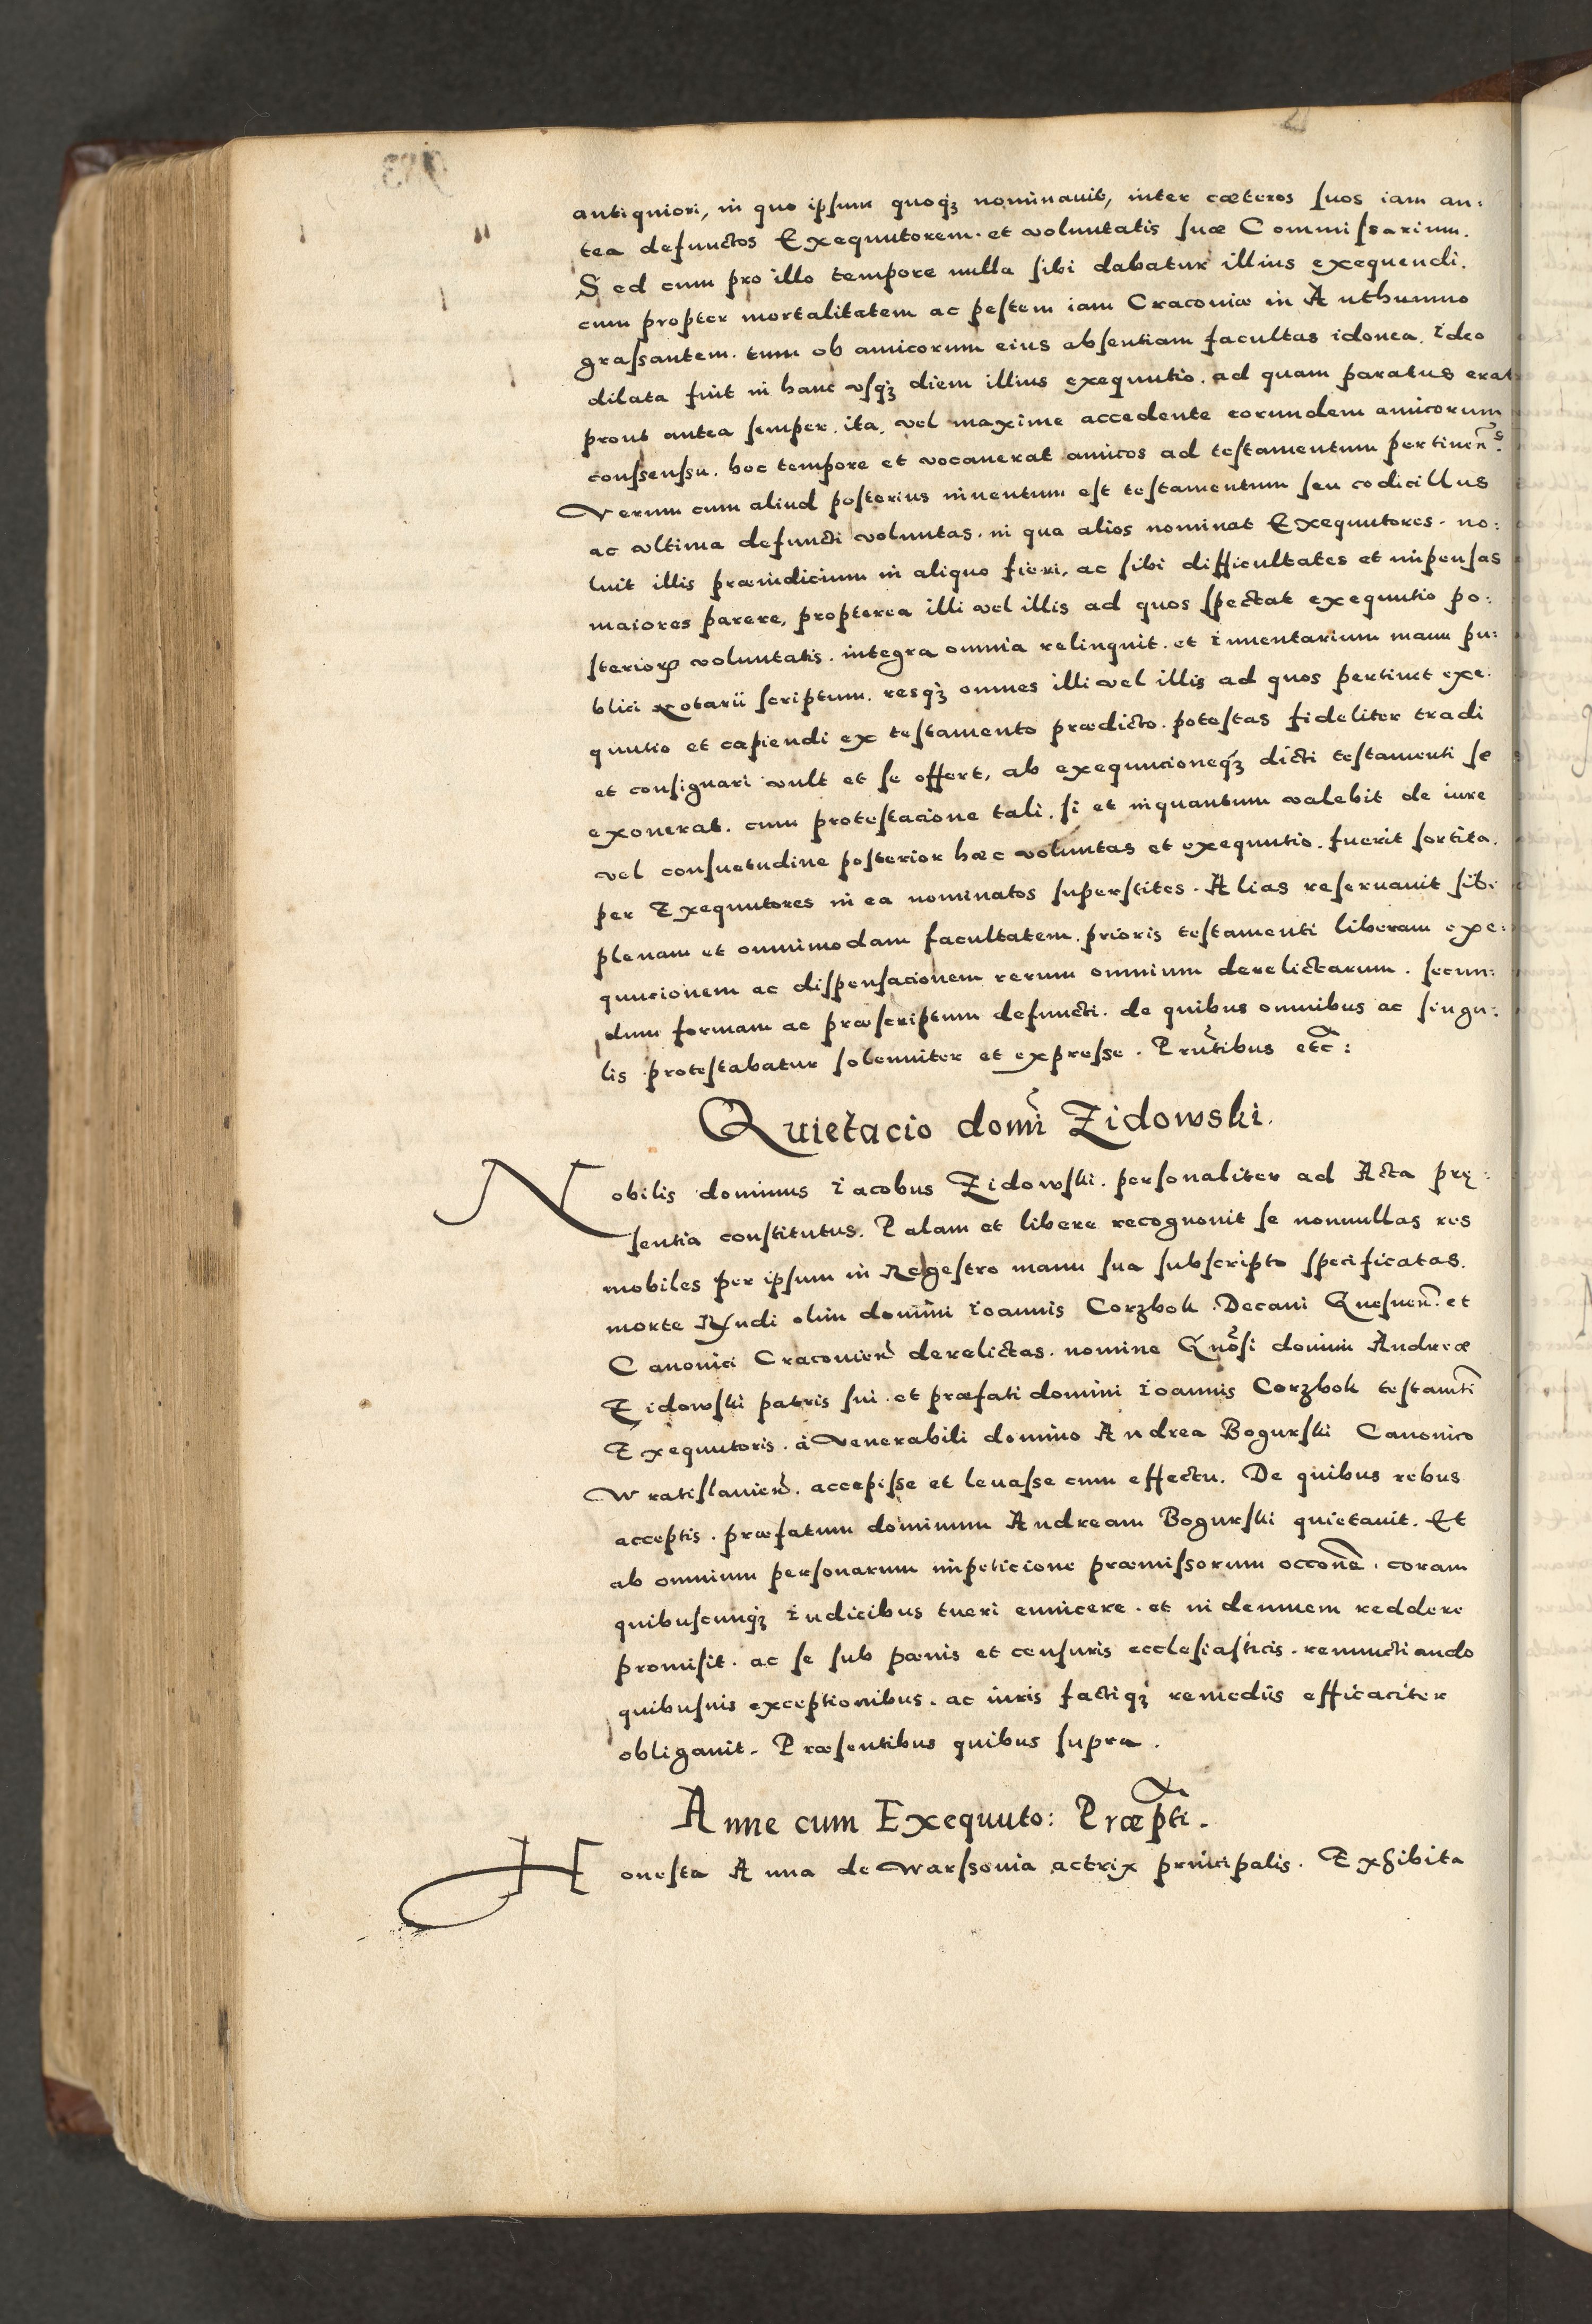 antiquiori, in quo ipsum quoqꝫ nominauit, inter cæteros suos iam an:
tea defunctos Exequutorem. et voluntatis suæ Commissarium.
Sed cum pro illo tempore nulla sibi dabatur illius exequendi.
cum propter mortalitatem ac pestem iam Cracouiæ in Authumno
grassantem. tum ob amicorum eius absentiam facultas idonea. ideo
dilata fuit in hanc vsqꝫ diem illius exequutio. ad quam paratus erat
prout antea semper. ita. vel maxime accedente eorundem amicorum
conssensu. hoc tempore et vocauerat amicos ad testamentum pertineñs.
Verum cum aliud posterius inuentum est testamentum seu codicillus
ac vltima defuncti voluntas. in qua alios nominat Exequutores. no:
luit illis præiudicium in aliquo fieri, ac sibi difficultates et impensas
maiores parere, propterea illi vel illis ad quos spectat exequutio po:
sterioꝝ voluntatis. integra omnia relinquit. et inuentarium manu pu:
blici Notarii scriptum. resqꝫ omnes illi vel illis ad quos pertinet exe:
quutio et capiendi ex testamento prædicto. potestas fideliter tradi
et consignari vult et se offert, ab exequucioneqꝫ dicti testamenti se
exonerat. cum protestacione tali. si et inquantum valebit de iure
vel consuetudine posterior hæc voluntas et exequutio. fuerit sortita.
per Exequutores in ea nominatos superstites. Alias reseruauit sibi
plenam et omnimodam facultatem. prioris testamenti liberam exe:
quucionem ac dispensacionem rerum omnium derelictarum. secun:
dum formam ac præscriptum defuncti. de quibus omnibus ac singu:
lis protestabatur solenniter et expresse. Pntibus etc̃:
Quietacio domi Zidowski.
Nobilis dominus iacobus Zidowski. personaliter ad Acta prę:
sentia constitutus. Palam et libere recognouit se nonnullas res
mobiles per ipsum in Regestro manu sua subscripto specificatas.
morte Rndi olim domini ioannis Corzbok. Decani Gnesnen̄. et
Canonici Cracouien̄ derelictas. nomine Gnosi domini Andreæ
Zidowski patris sui. et præfati domini ioannis Corzbok testamti
Exequutoris. à Venerabili domino Andrea Bogurski Canonico
Wratislauien̄. accepisse et leuasse cum effectu. De quibus rebus
acceptis. præfatum dominum Andream Bogurski quietauit. Et
ab omnium personarum impeticione præmissorum occone. coram
quibuscunqꝫ iudicibus tueri euincere. et indemnem reddere
promisit. ac se sub pœnis et censuris ecclesiasticis. renunctiando
quibusuis exceptionibus. ac iuris factiqꝫ remediis efficaciter
obligauit. Præsentibus quibus supra.
Anne cum Exequuto: Præpti.
Honesta Anna de Warssouia actrix principalis. Exhibita